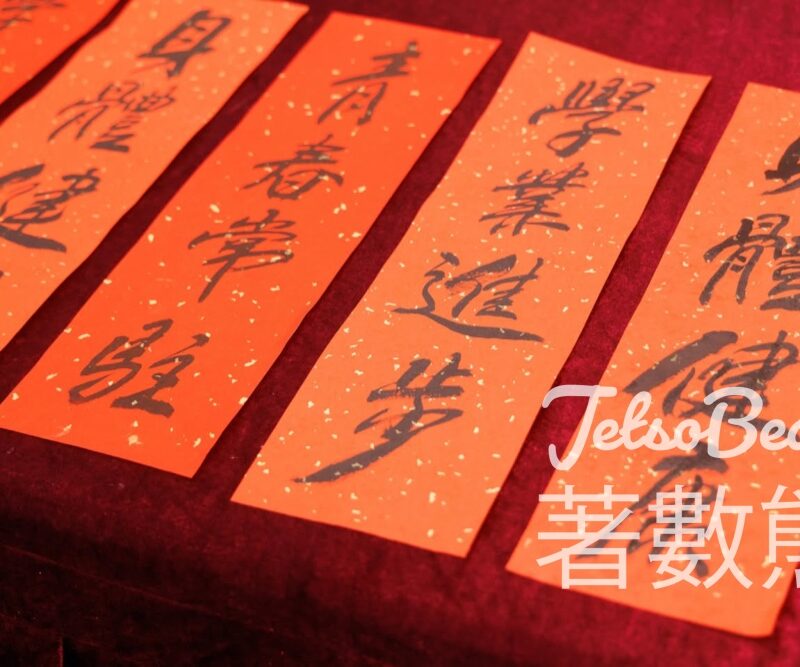 身體健
青春常駐
學業進步
身體健康
JetsoBea
著數熊